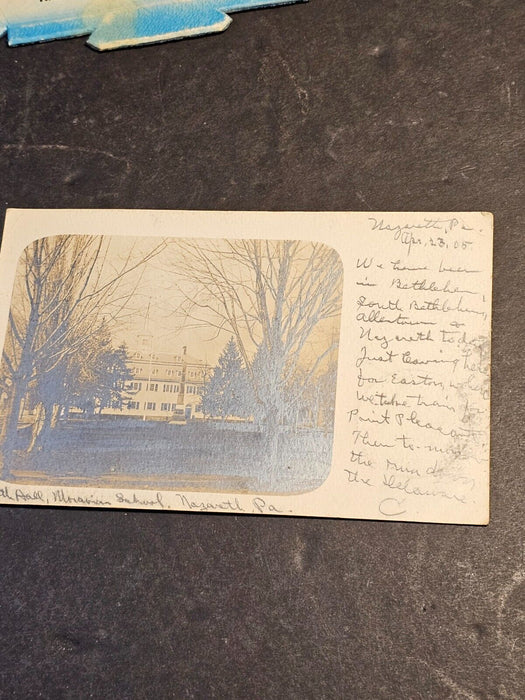 Nazareth, Pa.
Apr. 23, 05
We have been
in Bethlehem,
South Bethlehem,
Allentown &
Nazareth today
Just leaving here
for Easton,
We take train for
Point Pleasant
Then to-
the run down
the Delaware.
C
Hall, Moravian School, Nazareth, Pa.